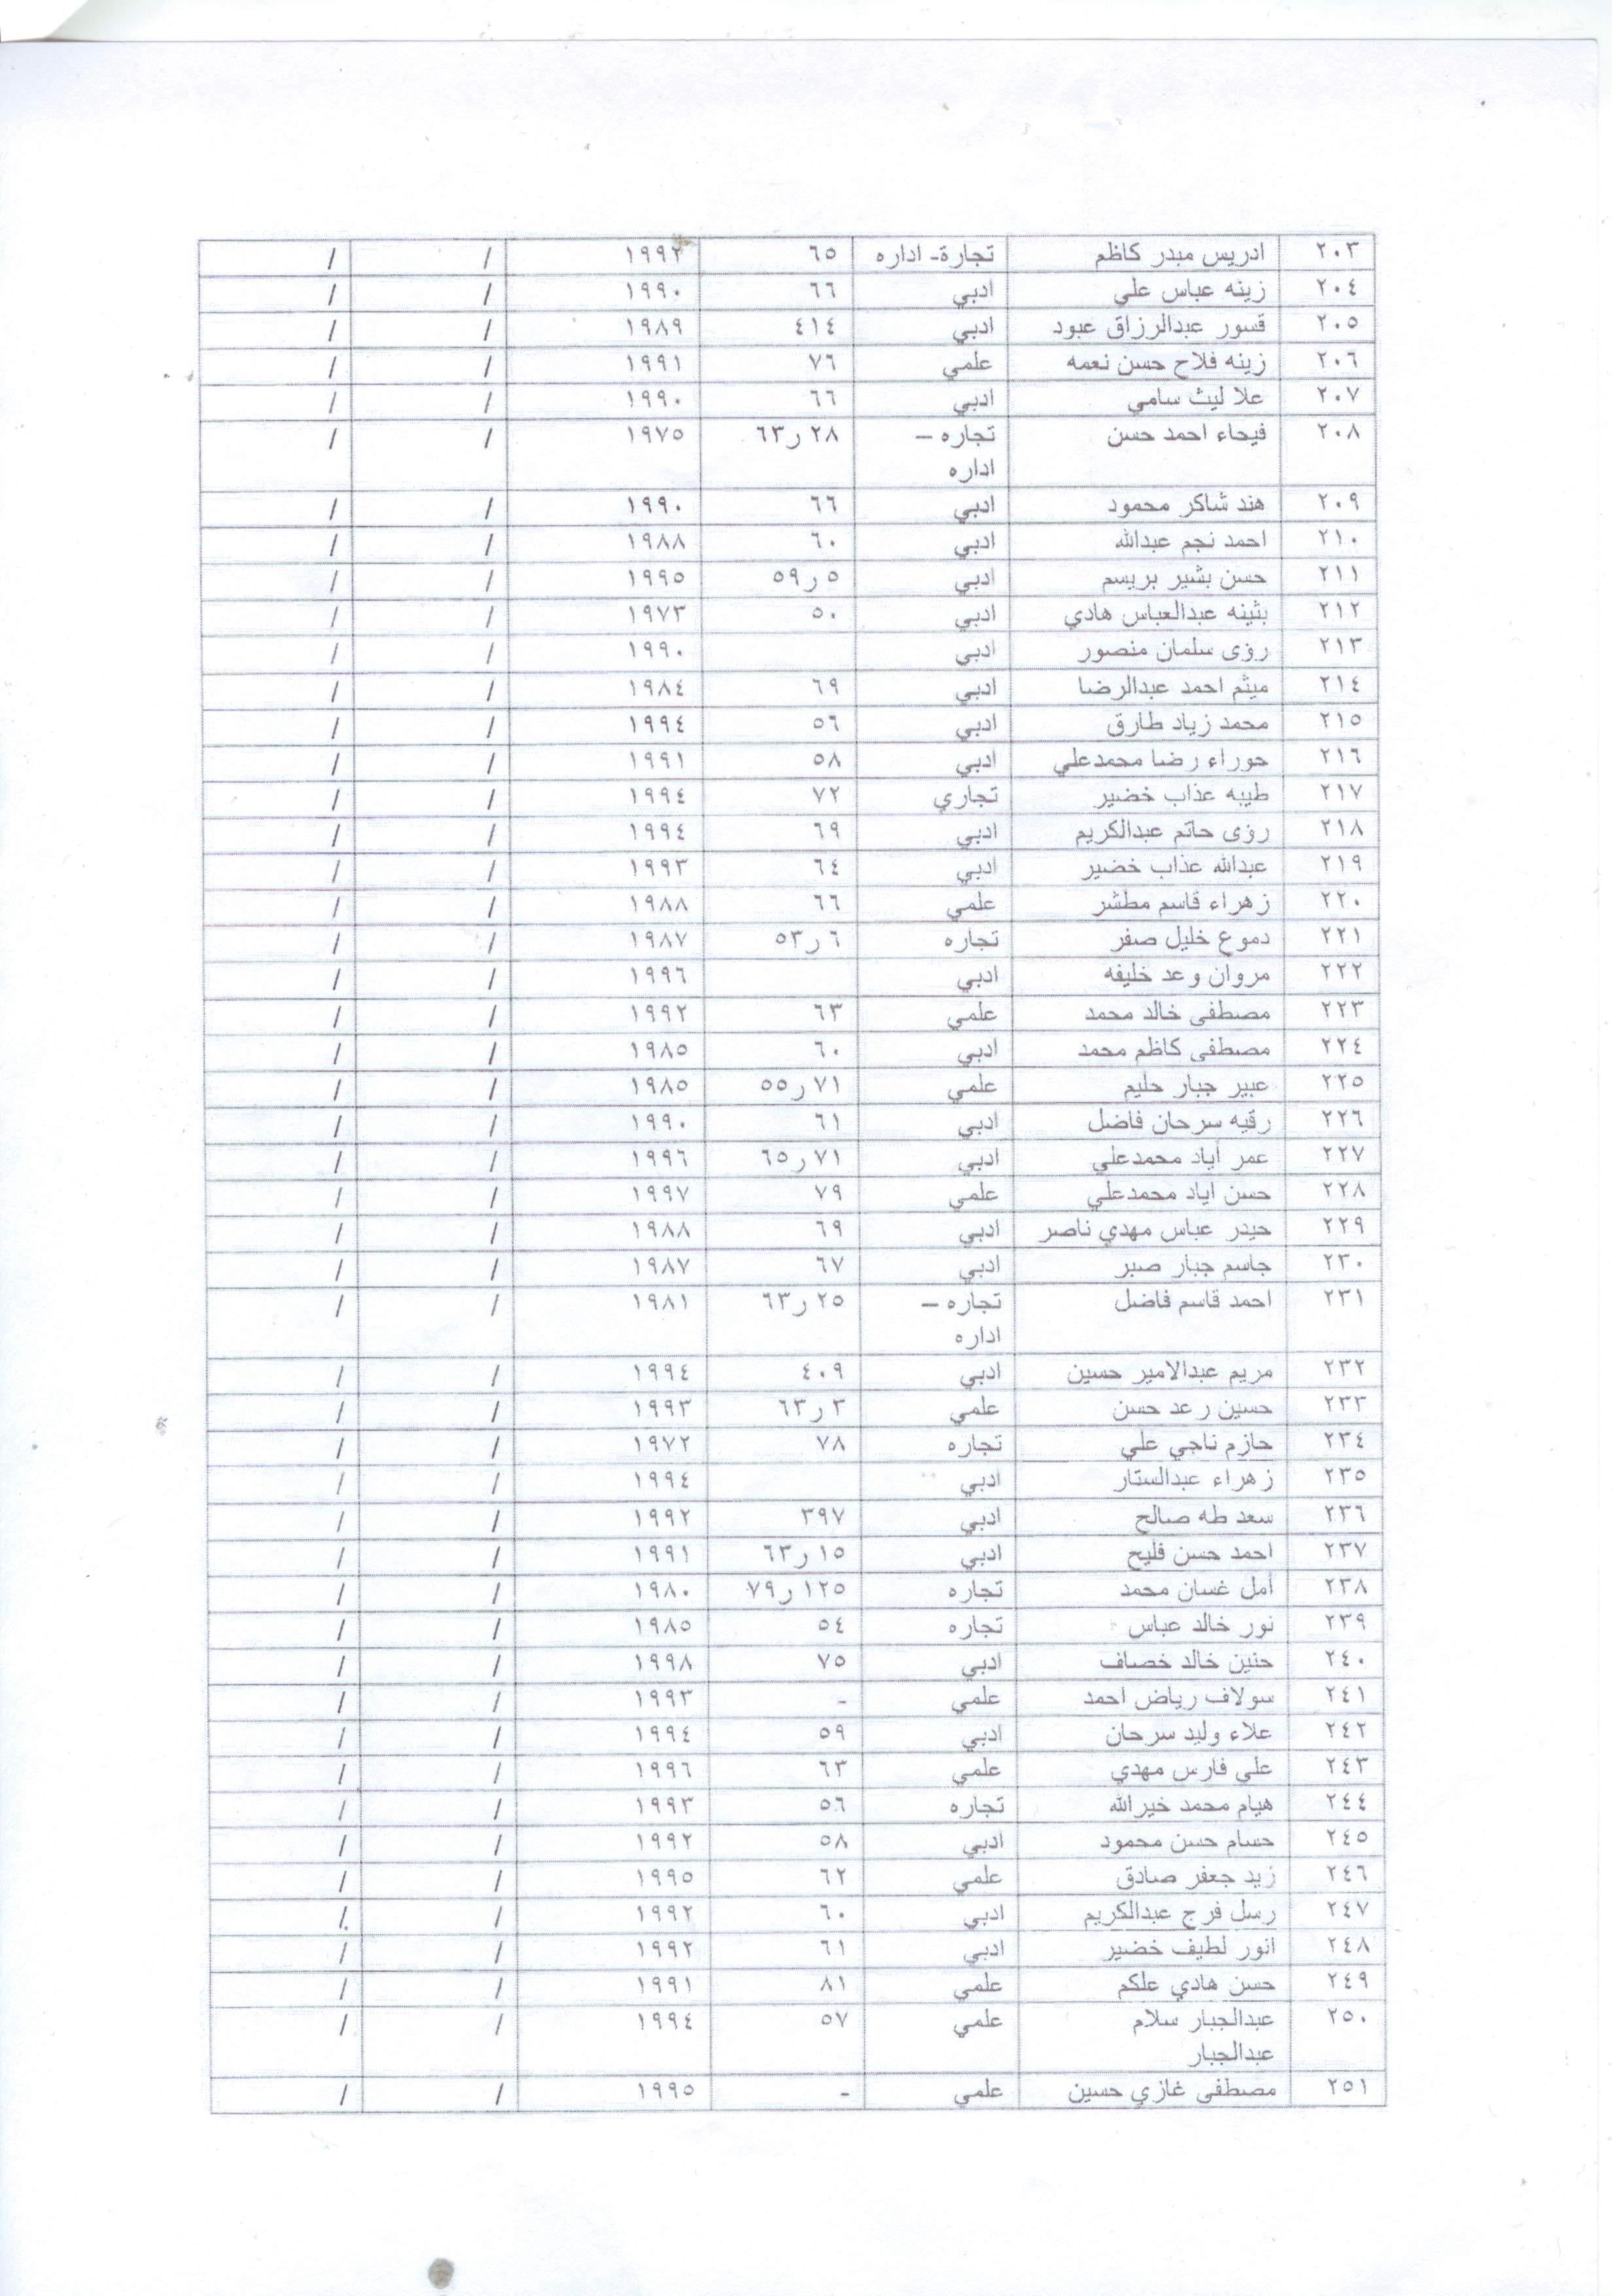 ٢٠٣ ادريس مبدر كاظم تجارة- اداره ٦٥ ١٩٩٢ / /
٢٠٤ زينه عباس علي ادبي ٦٦ ١٩٩٠ / /
٢٠٥ قسور عبدالرزاق عبود ادبي ٤١٤ ١٩٨٩ / /
٢٠٦ زينه فلاح حسن نعمه علمي ٧٦ ١٩٩١ / /
٢٠٧ علا ليث سامي ادبي ٦٦ ١٩٩٠ / /
٢٠٨ فيحاء احمد حسن تجاره – ٢٨ ر٦٣ ١٩٧٥ / /
اداره
٢٠٩ هند شاكر محمود ادبي ٦٦ ١٩٩٠ / /
٢١٠ احمد نجم عبدالله ادبي ٦٠ ١٩٨٨ / /
٢١١ حسن بشير بريسم ادبي ٥ر٥٩ ١٩٩٥ / /
٢١٢ بثينه عبدالعباس هادي ادبي ٥٠ ١٩٧٣ / /
٢١٣ رؤى سلمان منصور ادبي ١٩٩٠ / /
٢١٤ ميثم احمد عبدالرضا ادبي ٦٩ ١٩٨٤ / /
٢١٥ محمد زياد طارق ادبي ٥٦ ١٩٩٤ / /
٢١٦ حوراء رضا محمدعلي ادبي ٥٨ ١٩٩١ / /
٢١٧ طيبه عذاب خضير تجاري ٧٢ ١٩٩٤ / /
٢١٨ رؤى حاتم عبدالكريم ادبي ٦٩ ١٩٩٤ / /
٢١٩ عبدالله عذاب خضير ادبي ٦٤ ١٩٩٣ / /
٢٢٠ زهراء قاسم مطشر علمي ٦٦ ١٩٨٨ / /
٢٢١ دموع خليل صفر تجاره ٦ر٥٣ ١٩٨٧ / /
٢٢٢ مروان وعد خليفه ادبي ١٩٩٦ / /
٢٢٣ مصطفى خالد محمد علمي ٦٣ ١٩٩٢ / /
٢٢٤ مصطفى كاظم محمد ادبي ٦٠ ١٩٨٥ / /
٢٢٥ عبير جبار حليم علمي ٧١ ر٥٥ ١٩٨٥ / /
٢٢٦ رقيه سرحان فاضل ادبي ٦١ ١٩٩٠ / /
٢٢٧ عمر أياد محمدعلي ادبي ٧١ ر٦٥ ١٩٩٦ / /
٢٢٨ حسن اياد محمدعلي علمي ٧٩ ١٩٩٧ / /
٢٢٩ حيدر عباس مهدي ناصر ادبي ٦٩ ١٩٨٨ / /
٢٣٠ جاسم جبار صبر ادبي ٦٧ ١٩٨٧ / /
٢٣١ احمد قاسم فاضل تجاره – ٢٥ ر٦٣ ١٩٨١ / /
اداره
٢٣٢ مريم عبدالامير حسين ادبي ٤٠٩ ١٩٩٤ / /
٢٣٣ حسين رعد حسن علمي ٣ر٦٣ ١٩٩٣ / /
٢٣٤ حازم ناجي علي تجاره ٧٨ ١٩٧٢ / /
٢٣٥ زهراء عبدالستار ادبي ١٩٩٤ / /
٢٣٦ سعد طه صالح ادبي ٣٩٧ ١٩٩٢ / /
٢٣٧ احمد حسن فليح ادبي ١٥ ر٦٣ ١٩٩١ / /
٢٣٨ أمل غسان محمد تجاره ١٢٥ ر٧٩ ١٩٨٠ / /
٢٣٩ نور خالد عباس تجاره ٥٤ ١٩٨٥ / /
٢٤٠ حنين خالد خصاف ادبي ٧٥ ١٩٩٨ / /
٢٤١ سولاف رياض احمد علمي - ١٩٩٣ / /
٢٤٢ علاء وليد سرحان ادبي ٥٩ ١٩٩٤ / /
٢٤٣ علي فارس مهدي علمي ٦٣ ١٩٩٦ / /
٢٤٤ هيام محمد خيرالله تجاره ٥٦ ١٩٩٣ / /
٢٤٥ حسام حسن محمود ادبي ٥٨ ١٩٩٢ / /
٢٤٦ زيد جعفر صادق علمي ٦٢ ١٩٩٥ / /
٢٤٧ رسل فرج عبدالكريم ادبي ٦٠ ١٩٩٢ / /
٢٤٨ انور لطيف خضير ادبي ٦١ ١٩٩٢ / /
٢٤٩ حسن هادي علكم علمي ٨١ ١٩٩١ / /
٢٥٠ عبدالجبار سلام علمي ٥٧ ١٩٩٤ / /
عبدالجبار
٢٥١ مصطفى غازي حسين علمي - ١٩٩٥ / /